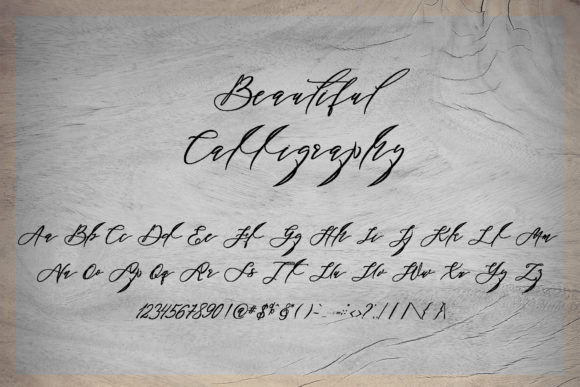 Beautiful
Calligraphy
Aa Bb Cc Dd Ee Ff Gg Hh Ii Jj Kk Ll Mm
Nn Oo Pp Qq Rr Ss Tt Uu Vv Ww Xx Yy Zz
1234567890!@#$%&()